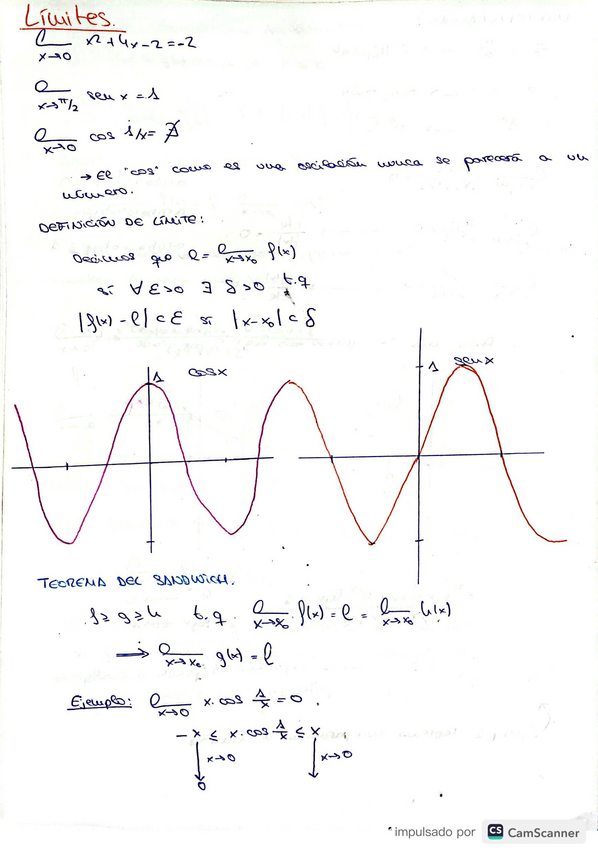 Límites.
l x→0 x²+4x-2=-2
l x→π/2 sen x = 1
l x→0 cos 1/x = ∄
→ El "cos" como es una oscilación nunca se parecerá a un
número.
DEFINICIÓN DE LÍMITE:
Decimos que l = l x→x₀ f(x)
si ∀ ε>0 ∃ δ>0 t.q
|f(x)-l| < ε si |x-x₀| < δ
1 cosx
1 senx
TEOREMA DEL SANDWICH.
f≥g≥h t.q. l x→x₀ f(x) = l = l x→x₀ h(x)
⟹ l x→x₀ g(x) = l
Ejemplo: l x→0 x·cos 1/x = 0.
-x ≤ x·cos 1/x ≤ x
x→0 x→0
0
*impulsado por CS CamScanner